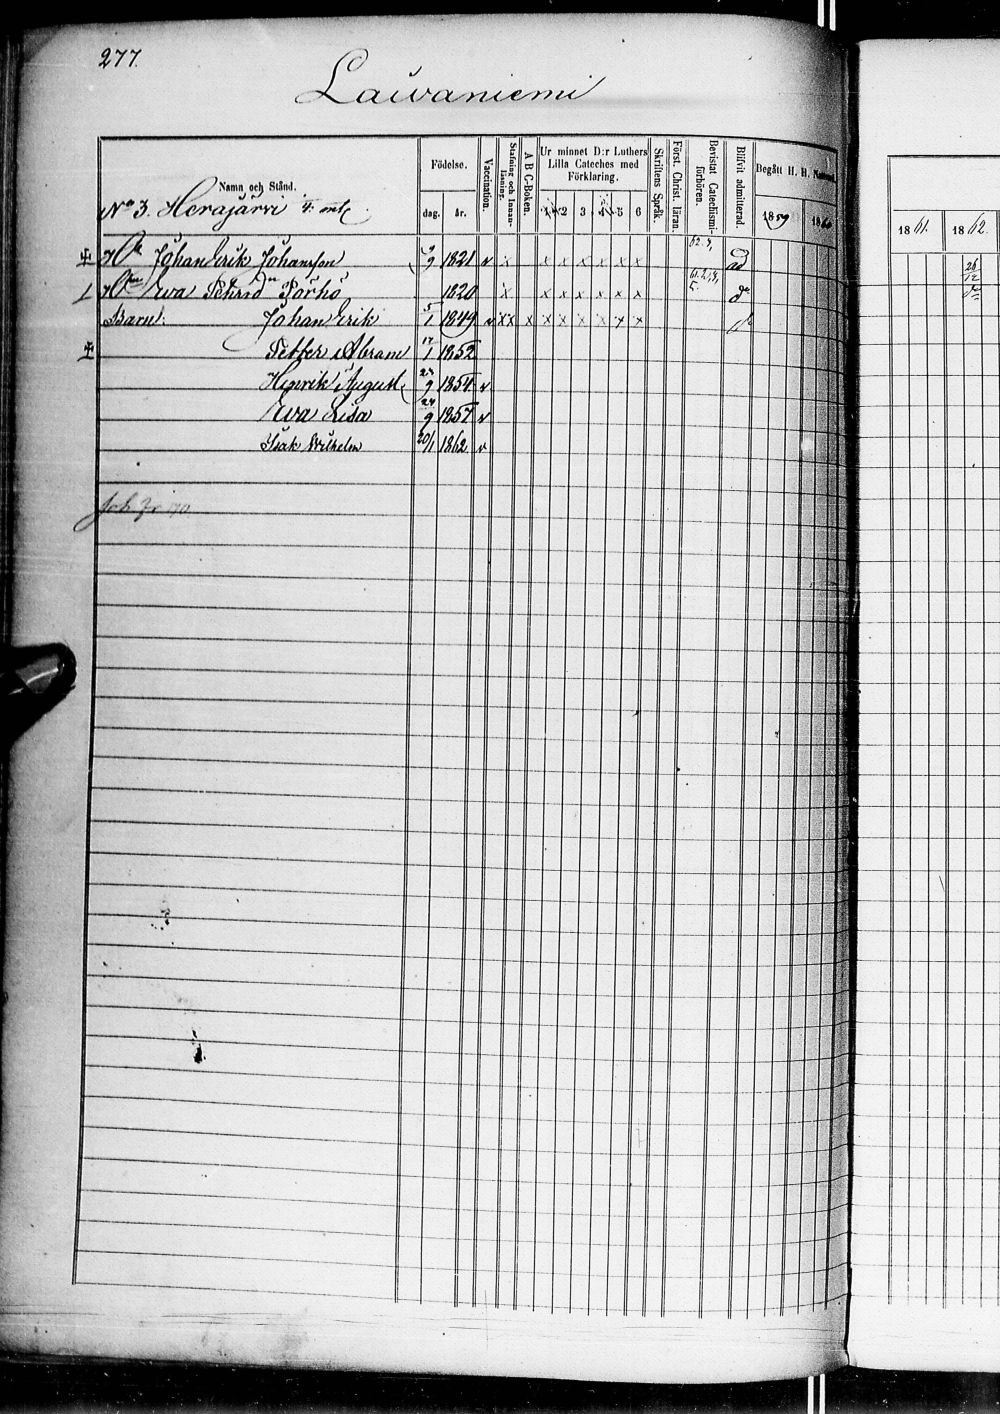 277.
Laiwaniemi
Namn och Stånd.
Födelse.
dag. år.
Vaccination.
Stafning och Innan-läsning.
A B C-Boken.
Ur minnet D:r Luthers Lilla Cateches med Förklaring.
1 2 3 4 5 6
Skriftens Språk.
Först. Christ. läran.
Bevistat Catechismi-förhören.
Blifvit admitterad.
Begått H. H. Nattvard.
1859 1860
1861. 1862.
No 3. Herajärvi
Johan Erik Johansson 9 1821 v x x x x x x x 62. 3, ad
Ewa 1820 x x x x x x x 61. 2, 3, 5. d
Barn: Johan Erik 5/1 1849 v x x x x x x x x x
Petter Abram 17/1 1852
Henrik August 23/9 1854 v
Ewa Lisa 24/9 1857 v
Isak Wilhelm 20/1 1862 v
26/12